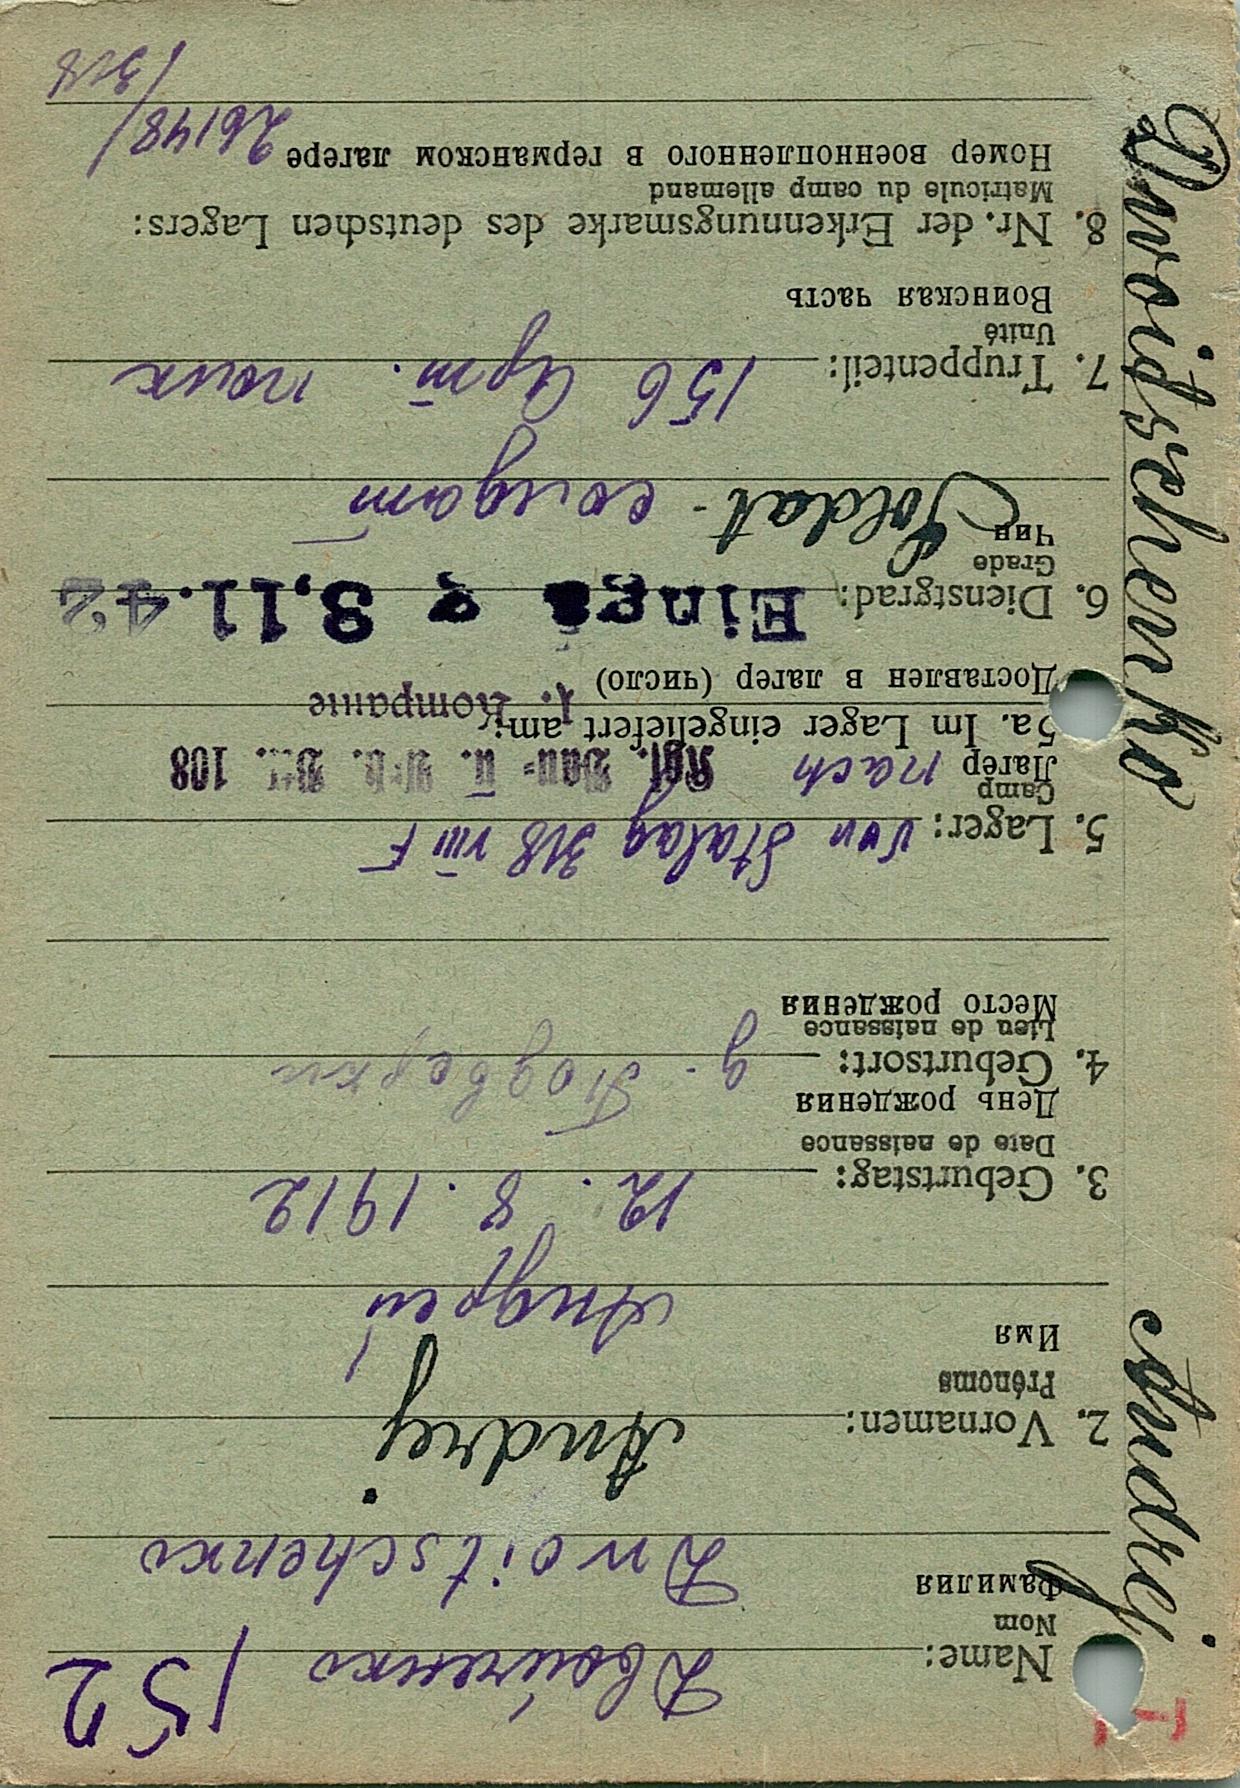 152
Name: Двойченко
Nom
Фамилия Dwoitschenko
2. Vornamen: Andrej
Prénoms
Имя Андрей
3. Geburtstag: 12. 8. 1912
Date de naissance
День рождения
4. Geburtsort: д.
Lieu de naissance
Место рождения
5. Lager: von Stalag 318 VIII F
Camp
Лагерь nach Kgf. Bau= u. Arb. Btl. 108
5a. Im Lager eingeliefert am: 1. Kompanie
Доставлен в лагер (число)
6. Dienstgrad: Eing. 3.11.42
Grade
Чин Soldat - солдат
7. Truppenteil: 156 Арт. полк
Unité
Воинская часть
8. Nr. der Erkennungsmarke des deutschen Lagers:
Matricule du camp allemand
Номер военнопленного в германском лагере 26148/
/318
Dwoidschenko Andrej